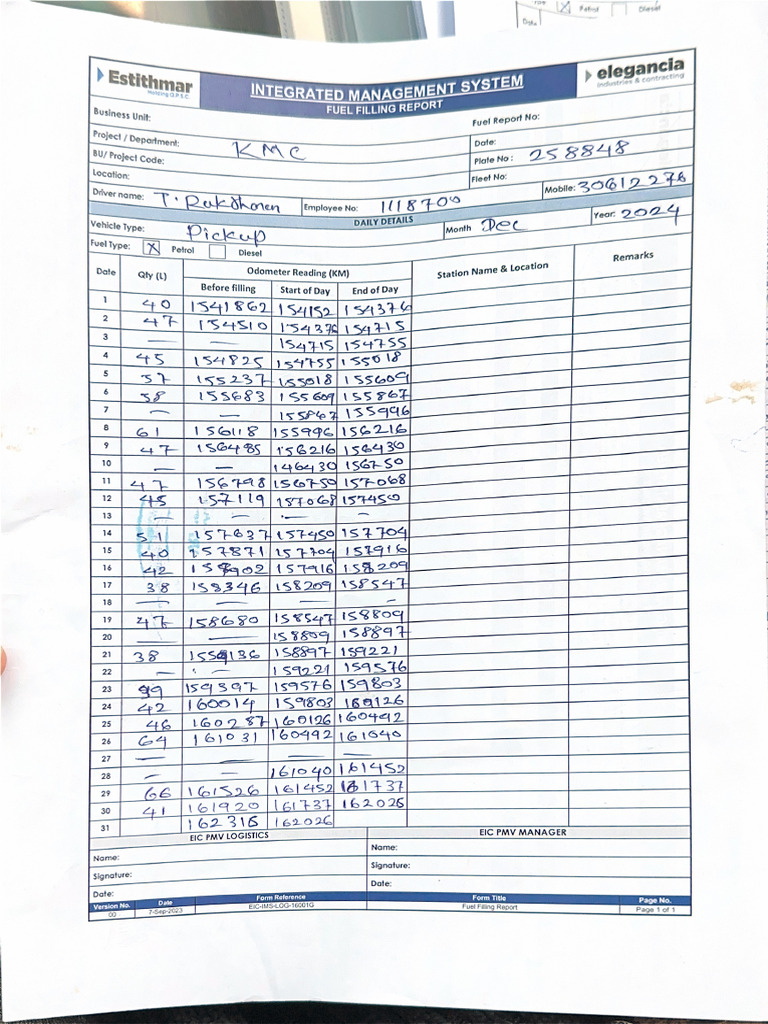 Petrol Diesel
Date
Estithmar
Holding Q.P.S.C
INTEGRATED MANAGEMENT SYSTEM
FUEL FILLING REPORT
elegancia
industries & contracting
Business Unit: Fuel Report No:
Project / Department: KMC Date:
BU/ Project Code: Plate No: 258848
Location: Fleet No:
Driver name: T. Employee No: 1118700 Mobile: 30612276
DAILY DETAILS
Vehicle Type: Pickup Month Dec Year: 2024
Fuel Type: X Petrol Diesel
Date Qty (L) Odometer Reading (KM) Station Name & Location Remarks
Before filling Start of Day End of Day
1 40 1541862 154152 154376
2 47 154510 154376 154715
3 — — 154715 154755
4 45 154825 154755 155018
5 57 155237 155018 155609
6 58 155683 155609 155867
7 — — 155867 155996
8 61 156118 155996 156216
9 47 156485 156216 156430
10 — — 146430 156750
11 47 156798 156750 157068
12 45 157119 157068 157450
13 — — — —
14 51 157637 157450 157704
15 40 157871 157704 157916
16 42 157916 158209
17 38 158346 158209 158547
18 — — — —
19 47 158680 158547 158809
20 — — 158809 158897
21 38 158897 159221
22 — — 159221 159576
23 99 159397 159576 159803
24 42 160014 159803 160126
25 46 160287 160126 160492
26 64 161031 160492 161040
27 — — — —
28 — — 161040 161452
29 66 161526 161452 161737
30 41 161920 161737 162026
31 162316 162026
EIC PMV LOGISTICS EIC PMV MANAGER
Name: Name:
Signature: Signature:
Date: Date:
Version No. Date Form Reference Form Title Page No.
00 7-Sep-2023 EIC-IMS-LOG-16001G Fuel Filling Report Page 1 of 1